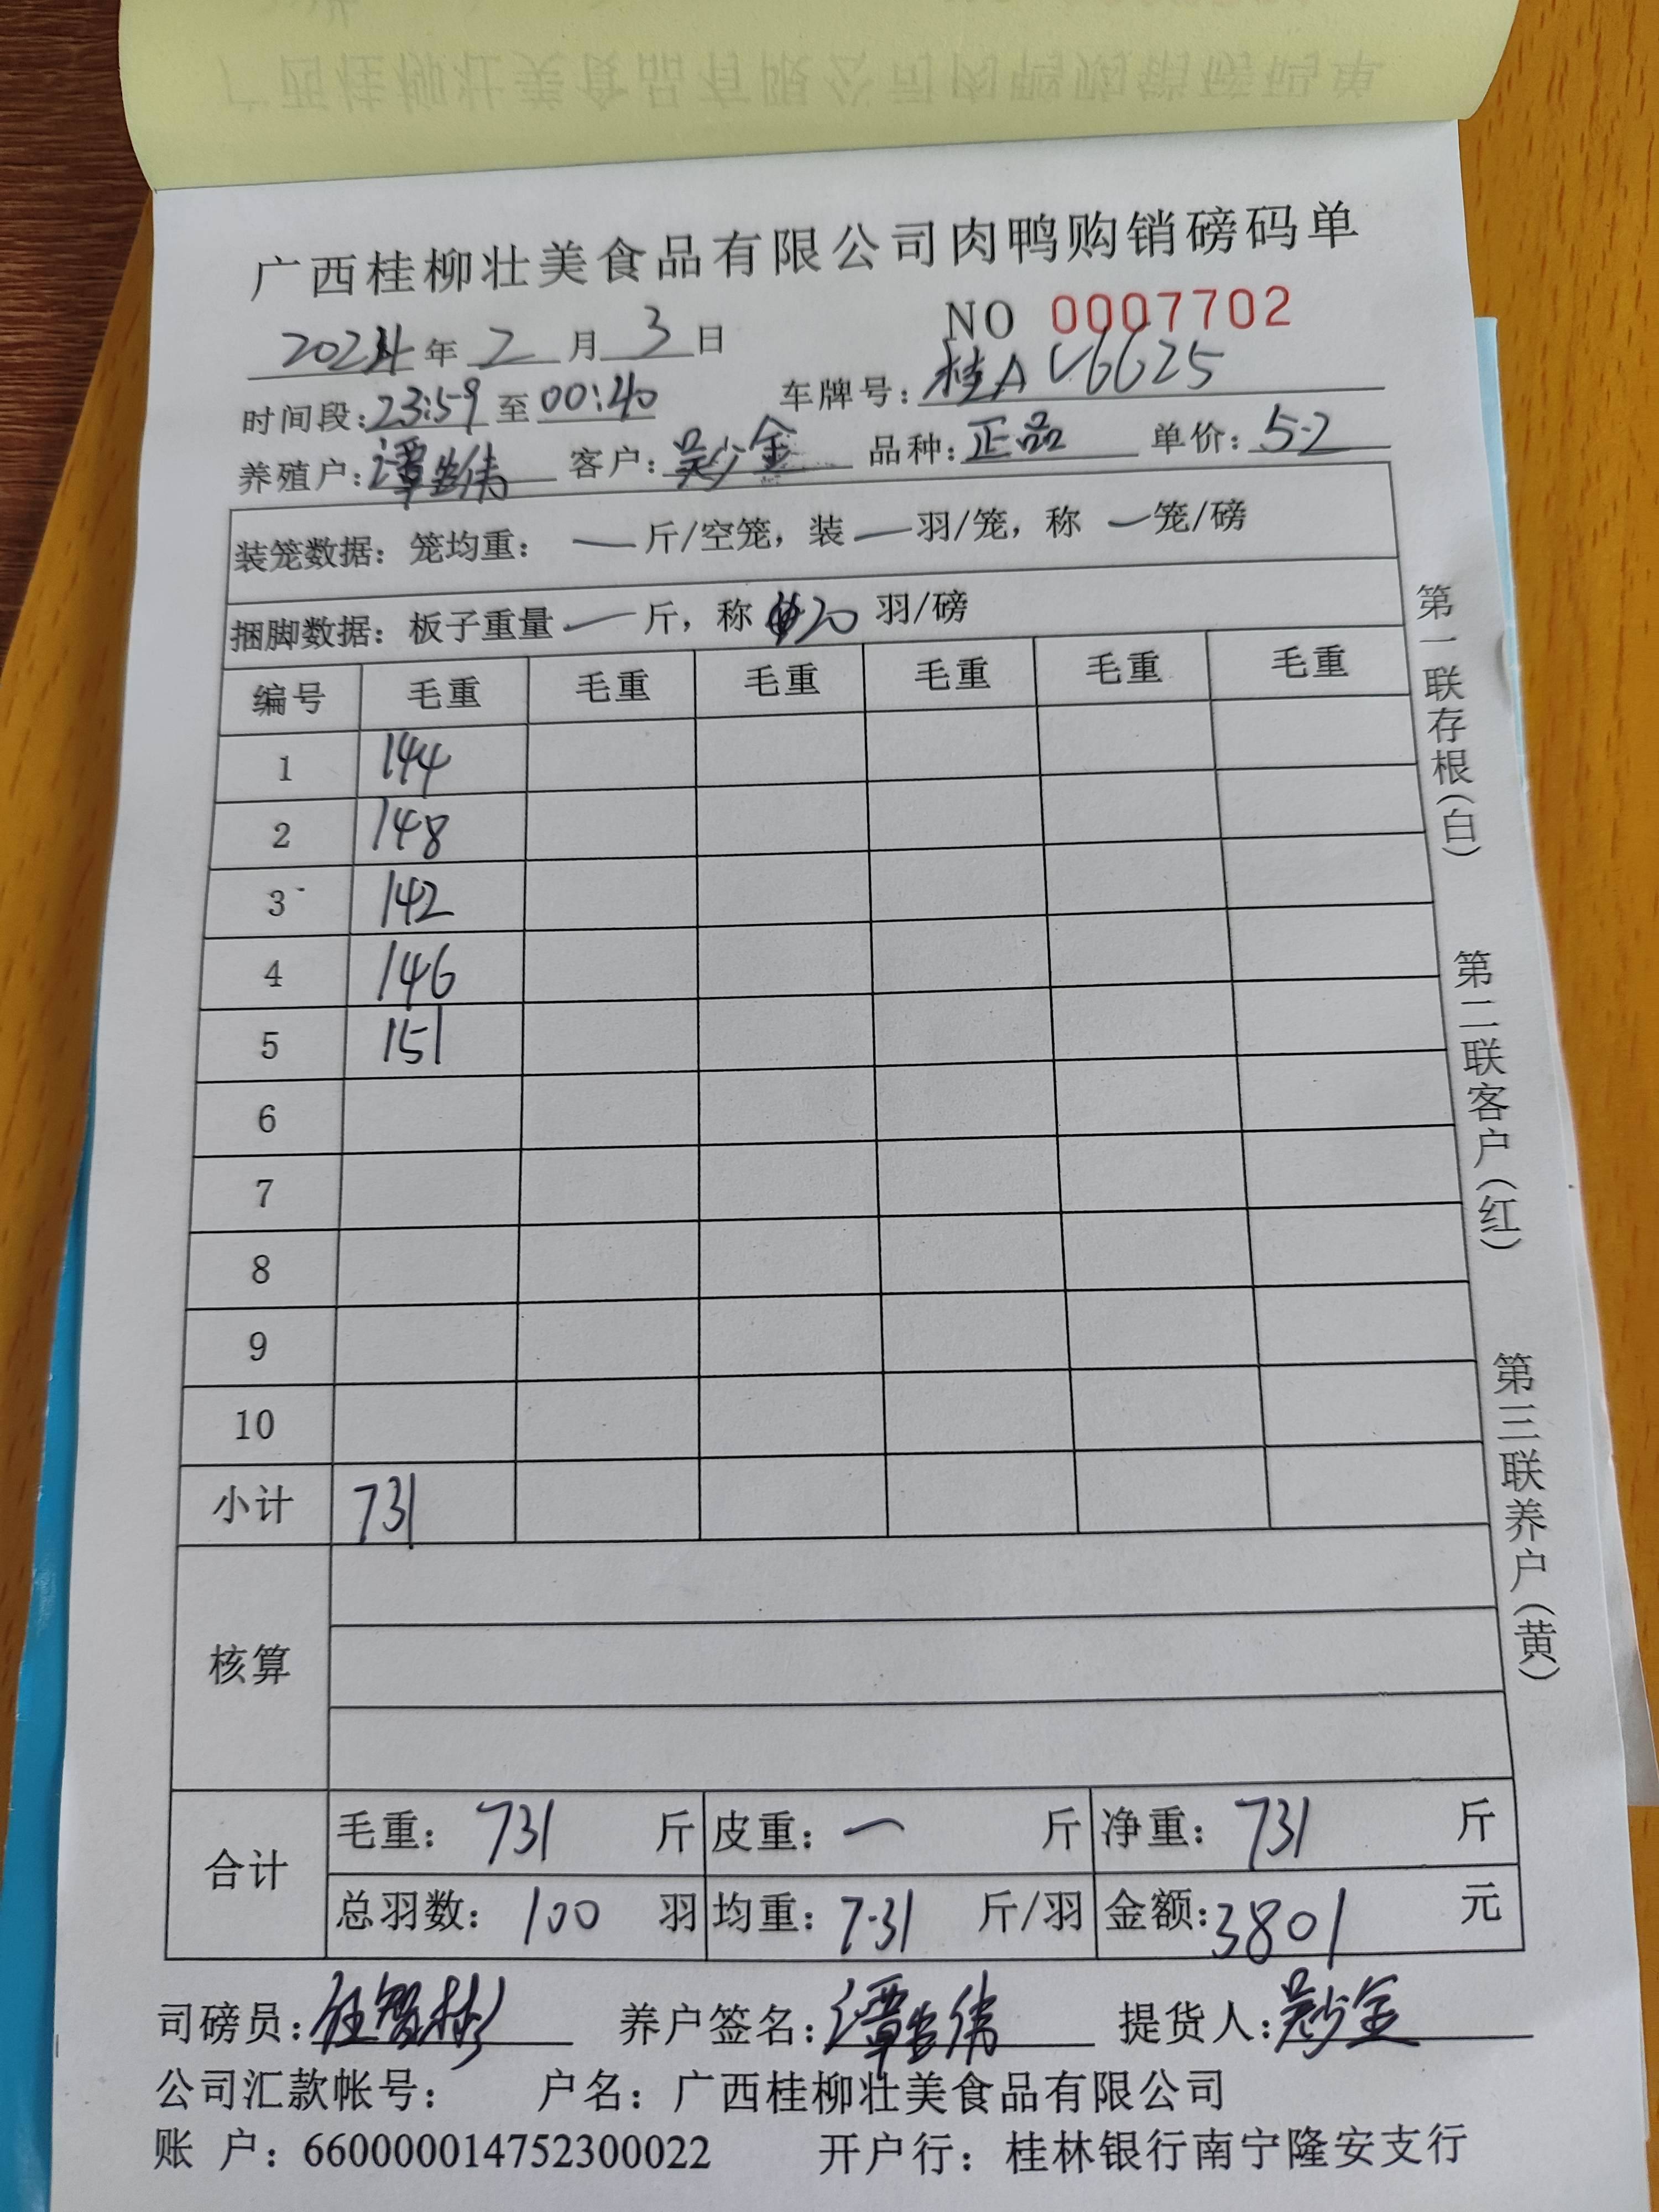 广西桂柳壮美食品有限公司肉鸭购销磅码单
NO 0007702
2024年2月3日
时间段:23:59至00:40 车牌号:桂AV6625
养殖户:谭 伟 客户:吴少金 品种:正品 单价:5.2
装笼数据:笼均重:一斤/空笼,装一羽/笼,称一笼/磅
捆脚数据:板子重量一斤,称20羽/磅
编号 毛重 毛重 毛重 毛重 毛重 毛重
1 144
2 148
3 142
4 146
5 151
6
7
8
9
10
小计 731
核算
合计
毛重:731斤 皮重:一斤 净重:731斤
总羽数:100羽 均重:7.31斤/羽 金额:3801元
司磅员: 养户签名:谭 伟 提货人:吴少金
公司汇款帐号: 户名:广西桂柳壮美食品有限公司
账 户:660000014752300022 开户行:桂林银行南宁隆安支行
第一联存根(白) 第二联客户(红) 第三联养户(黄)